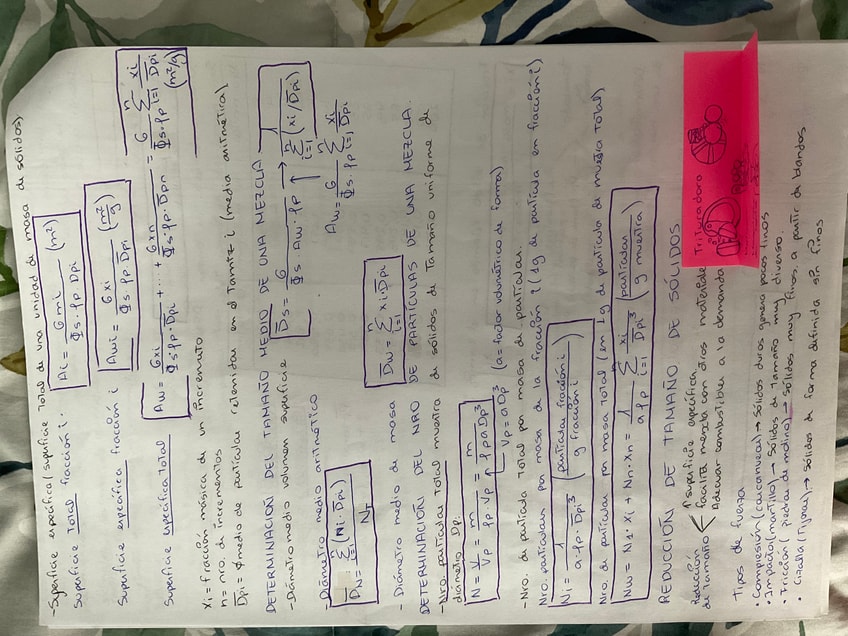 - Superficie específica (superficie total de una unidad de masa de sólidos)
Superficie total fracción i. Ai = 6mi / Φs·ρp·D̄pi (m²)
Superficie específica fracción i Awi = 6xi / Φs·ρp·D̄pi (m²/g)
Superficie específica total Aw = 6xi / Φs·ρp·D̄pi + ... + 6xn / Φs·ρp·D̄pn = 6 / Φs·ρp Σ(i=1, n) xi / D̄pi (m²/g)
xi = fracción másica de un incremento
n = nro. de incrementos
D̄pi = Φ medio de partículas retenidas en el tamiz i (media aritmética)
DETERMINACIÓN DEL TAMAÑO MEDIO DE UNA MEZCLA
- Diámetro medio volumen superficie D̄s = 6 / Φs·Aw·ρp → 1 / Σ(i=1, n) (xi/D̄pi)
Aw = 6 / Φs·ρp Σ(i=1, n) xi / D̄pi
- Diámetro medio aritmético
D̄N = Σ(i=1, n) (Ni·D̄pi) / NT
- Diámetro medio de masa D̄w = Σ(i=1, n) xi·D̄pi
DETERMINACIÓN DEL NRO DE PARTÍCULAS DE UNA MEZCLA.
- Nro. partículas total muestra de sólidos de tamaño uniforme de
diámetro Dp.
N = V / Vp = m / ρp Vp = m / ρp a Dp³
Vp = a Dp³ (a = factor volumétrico de forma)
- Nro. de partícula total por masa de partículas.
Nro. partículas por masa de la fracción i (1g de partícula en fracción i)
Ni = 1 / a·ρp·D̄pi³ (partículas fracción i / g fracción i)
Nro. de partículas por masa total (en 1g de partícula de muestra total)
Nw = N1·x1 + Nn·xn = 1 / a ρp Σ(i=1, n) xi / D̄pi³ (partículas / g muestra)
REDUCCIÓN DE TAMAÑO DE SÓLIDOS
Reducción de tamaño < ↑ superficie específica
facilita mezcla con otros materiales
Adecuar combustible a la demanda
Trituradora
Tipos de fuerza
• Compresión (cascanueces) → sólidos duros genera pocos finos
• Impacto (martillo) → sólidos de tamaño muy diverso.
• Fricción (piedras de molino) → sólidos muy finos, a partir de blandos
• Cizalla (tijeras) → sólidos de forma definida sin finos